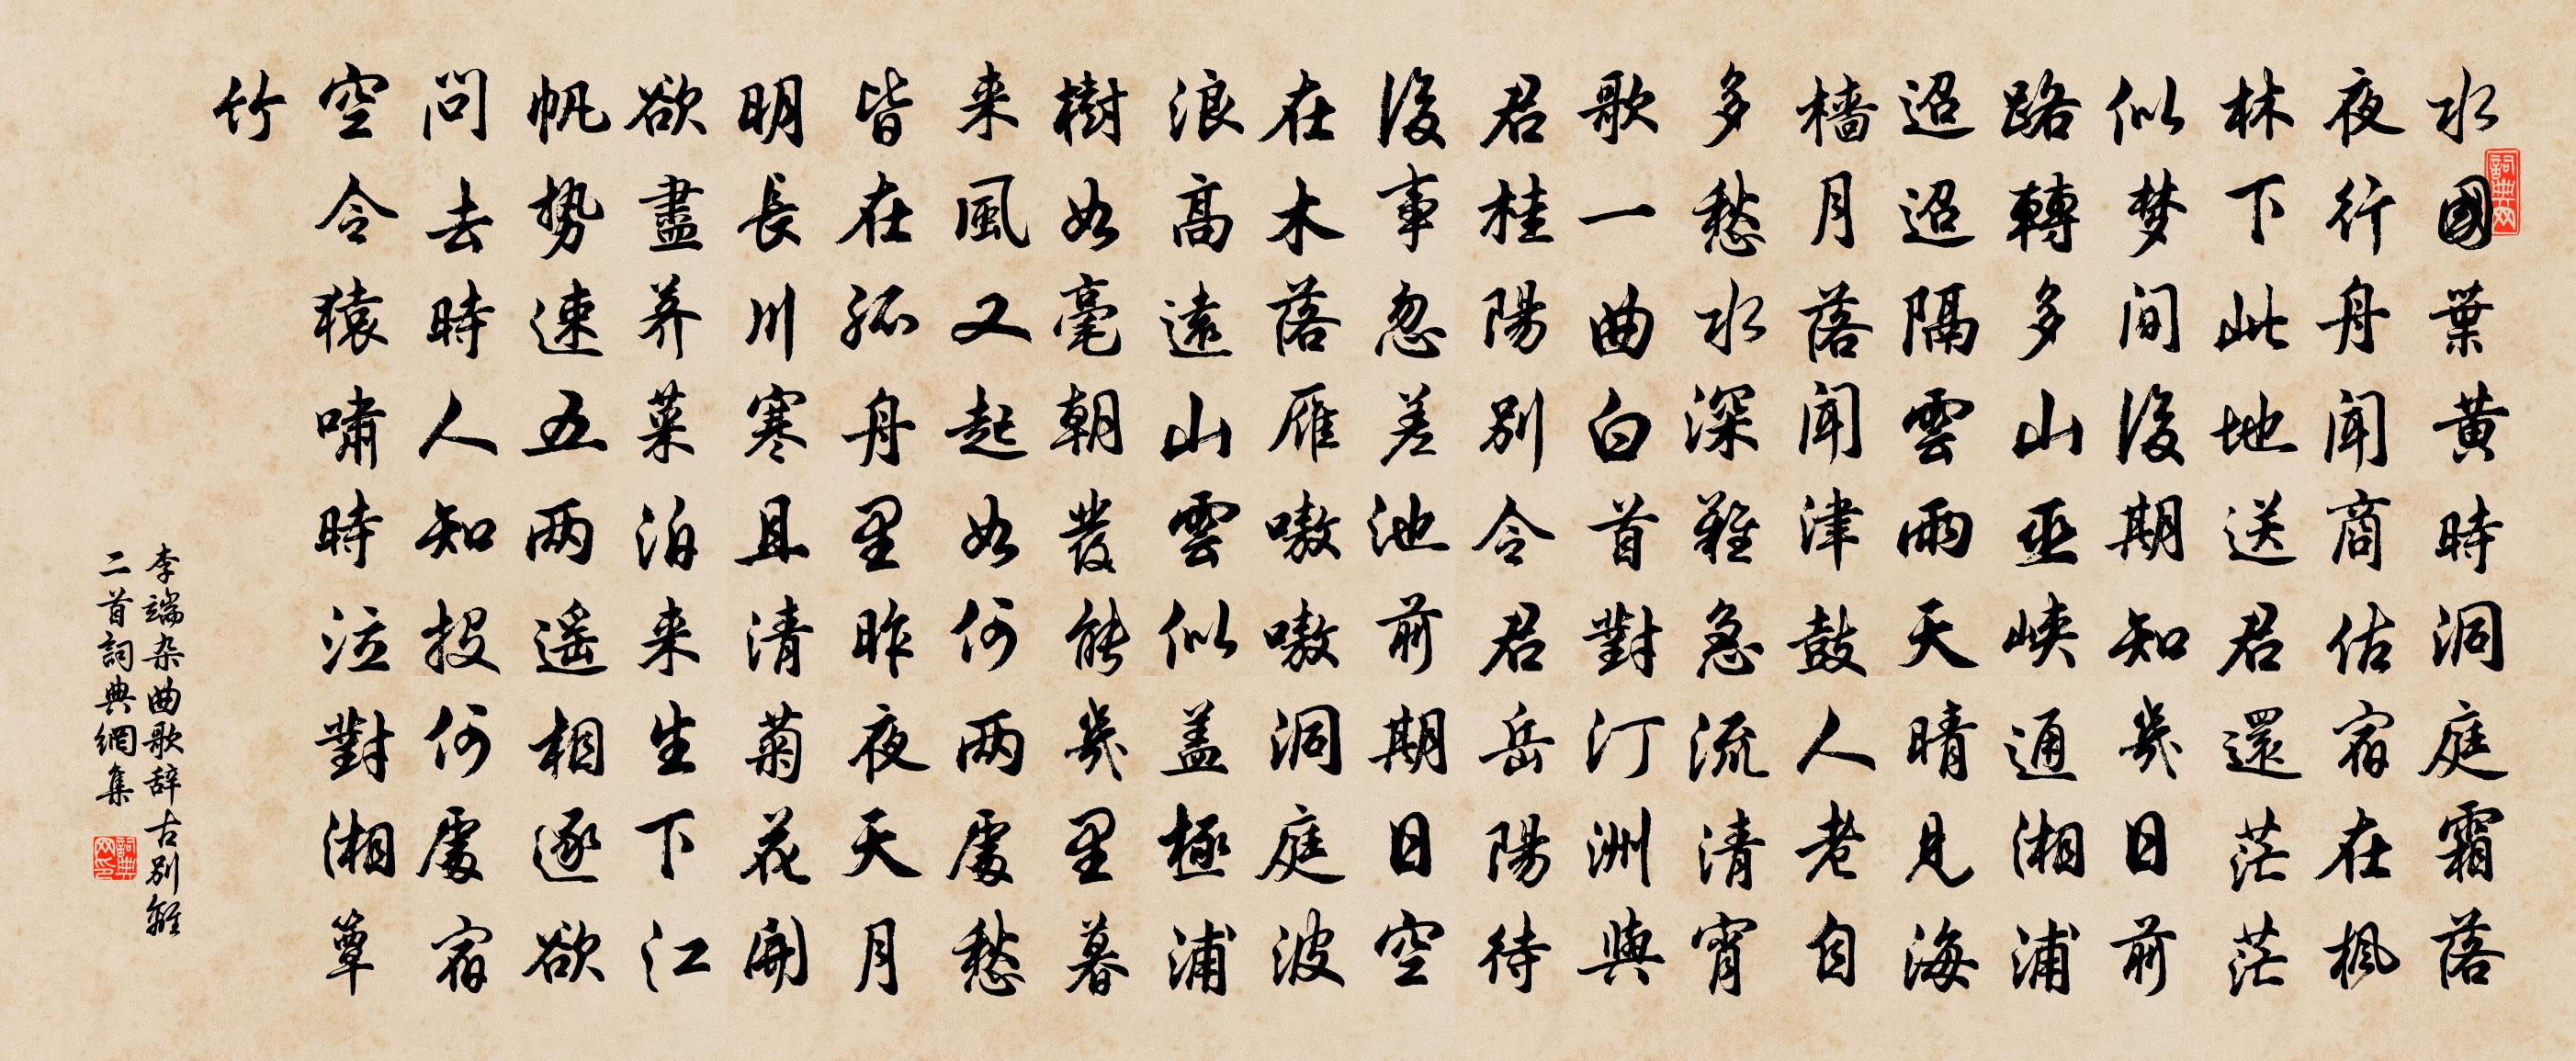 水國葉黄時洞庭霜落
夜行舟闻商估宿在楓
林下此地送君還茫茫
似梦间後期知幾日前
路轉多山巫峡通湘浦
迢迢隔雲雨天晴見海
檣月落闻津鼓人老自
多愁水深難急流清宵
歌一曲白首對汀洲與
君桂陽别令君岳陽待
後事忽差池前期日空
在木落雁嗷嗷洞庭波
浪高遠山雲似盖極浦
樹如毫朝發能幾里暮
来風又起如何两處愁
皆在孤舟里昨夜天月
明長川寒且清菊花開
欲盡荠菜泊来生下江
帆势速五两遥相逐欲
问去時人知投何處宿
空令猿啸時泣對湘簟
竹
李端杂曲歌辞古别離
二首詞典網集
詞典网
詞典网印